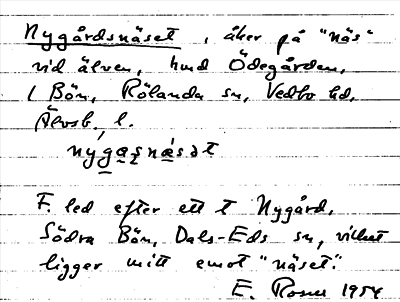 Nygårdsnäset, åker på "näs"
vid älven, hmd Ödegården,
1 Bön, Rölanda sn, Vedbo hd,
Älvsb. l.
nygaṣnäsət
F. led efter ett † Nygård,
Södra Bön, Dals-Eds sn, vilket
ligger mitt emot "näset".
E. Rosell 1954